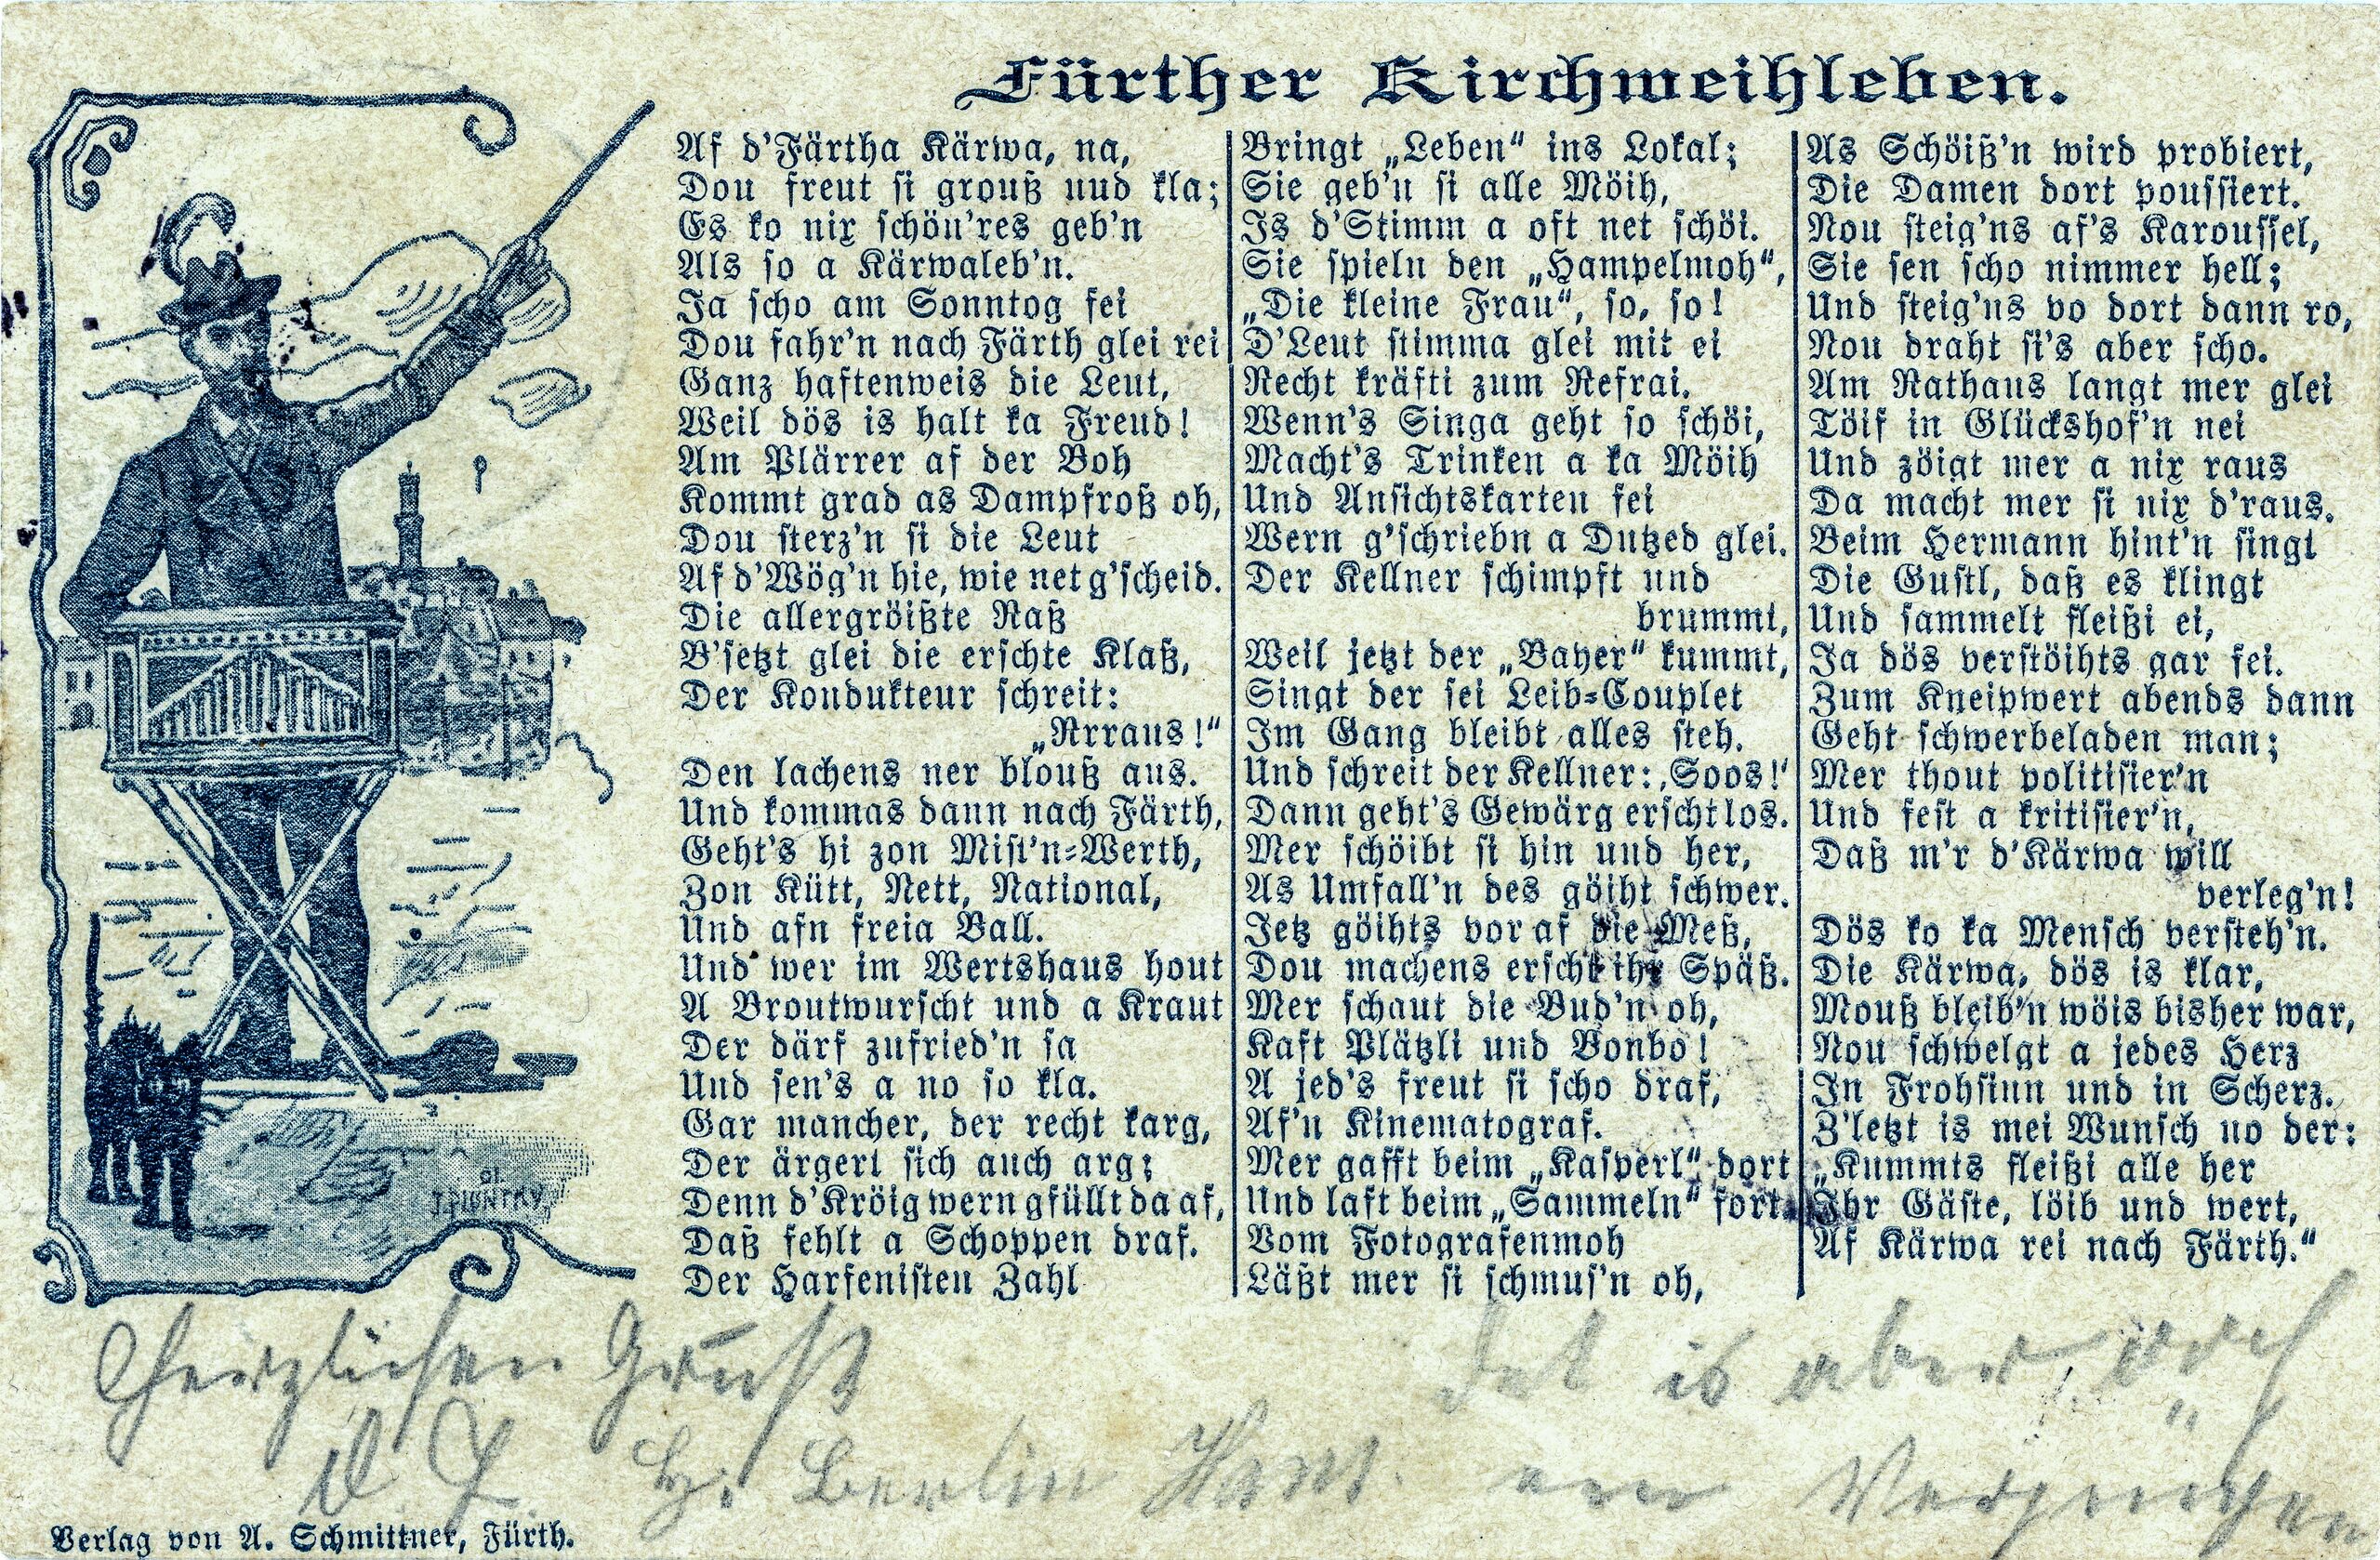 Fürther Kirchweihleben.
Af d'Färtha Kärwa, na,
Dou freut si grouß uud kla;
Es ko nix schön'res geb'n
Als so a Kärwaleb'n.
Ja scho am Sonntog fei
Dou fahr'n nach Färth glei rei
Ganz haftenweis die Leut,
Weil dös is halt ka Freud!
Am Plärrer af der Boh
Kommt grad as Dampfroß oh,
Dou sterz'n si die Leut
Af d'Wög'n hie, wie net g'scheid.
Die allergröißte Raß
B'setzt glei die erschte Klaß,
Der Kondukteur schreit:
„Rrraus!“
Den lachens ner blouß aus.
Und kommas dann nach Färth,
Geht's hi zon Mist'n-Werth,
Zon Kütt, Nett, National,
Und afn freia Ball.
Und wer im Wertshaus hout
A Broutwurscht und a Kraut
Der därf zufried'n sa
Und sen's a no so kla.
Gar mancher, der recht karg,
Der ärgert sich auch arg;
Denn d'Kröig wern gfüllt da af,
Daß fehlt a Schoppen draf.
Der Harfenisten Zahl
Bringt „Leben“ ins Lokal;
Sie geb'n si alle Möih,
Is d'Stimm a oft net schöi.
Sie spieln den „Hampelmoh“,
„Die kleine Frau“, so, so!
D'Leut stimma glei mit ei
Recht kräfti zum Refrai.
Wenn's Singa geht so schöi,
Macht's Trinken a ka Möih
Und Ansichtskarten fei
Wern g'schriebn a Dutzed glei.
Der Kellner schimpft und
brummt,
Weil jetzt der „Bayer“ kummt,
Singt der sei Leib-Couplet
Im Gang bleibt alles steh.
Und schreit der Kellner: ‚Soos!‘
Dann geht's Gewärg erscht los.
Mer schöibt si hin und her,
As Umfall'n des göiht schwer.
Jetz göihts vor af die Meß,
Dou machens erscht ihr Späß.
Mer schaut die Bud'n oh,
Kaft Plätzli und Bonbo!
A jed's freut si scho draf,
Af'n Kinematograf.
Mer gafft beim „Kasperl“ dort
Und laft beim „Sammeln“ fort.
Vom Fotografenmoh
Läßt mer si schmus'n oh,
As Schöiß'n wird probiert,
Die Damen dort poussiert.
Nou steig'ns af's Karoussel,
Sie sen scho nimmer hell;
Und steig'ns vo dort dann ro,
Nou draht si's aber scho.
Am Rathaus langt mer glei
Töif in Glückshof'n nei
Und zöigt mer a nix raus
Da macht mer si nix d'raus.
Beim Hermann hint'n singt
Die Gustl, daß es klingt
Und sammelt fleißi ei,
Ja dös verstöihts gar fei.
Zum Kneipwert abends dann
Geht schwerbeladen man;
Mer thout politisier'n
Und fest a kritisier'n,
Daß m'r d'Kärwa will
verleg'n!
Dös ko ka Mensch versteh'n.
Die Kärwa, dös is klar,
Mouß bleib'n wöis bisher war,
Nou schwelgt a jedes Herz
In Frohsinn und in Scherz.
Z'letzt is mei Wunsch no der:
„Kummts fleißi alle her
Ihr Gäste, löib und wert,
Af Kärwa rei nach Färth.“
Herzlichen Gruß
Det is aber
Berlin Hans.
Vergnügen
Verlag von A. Schmittner, Fürth.